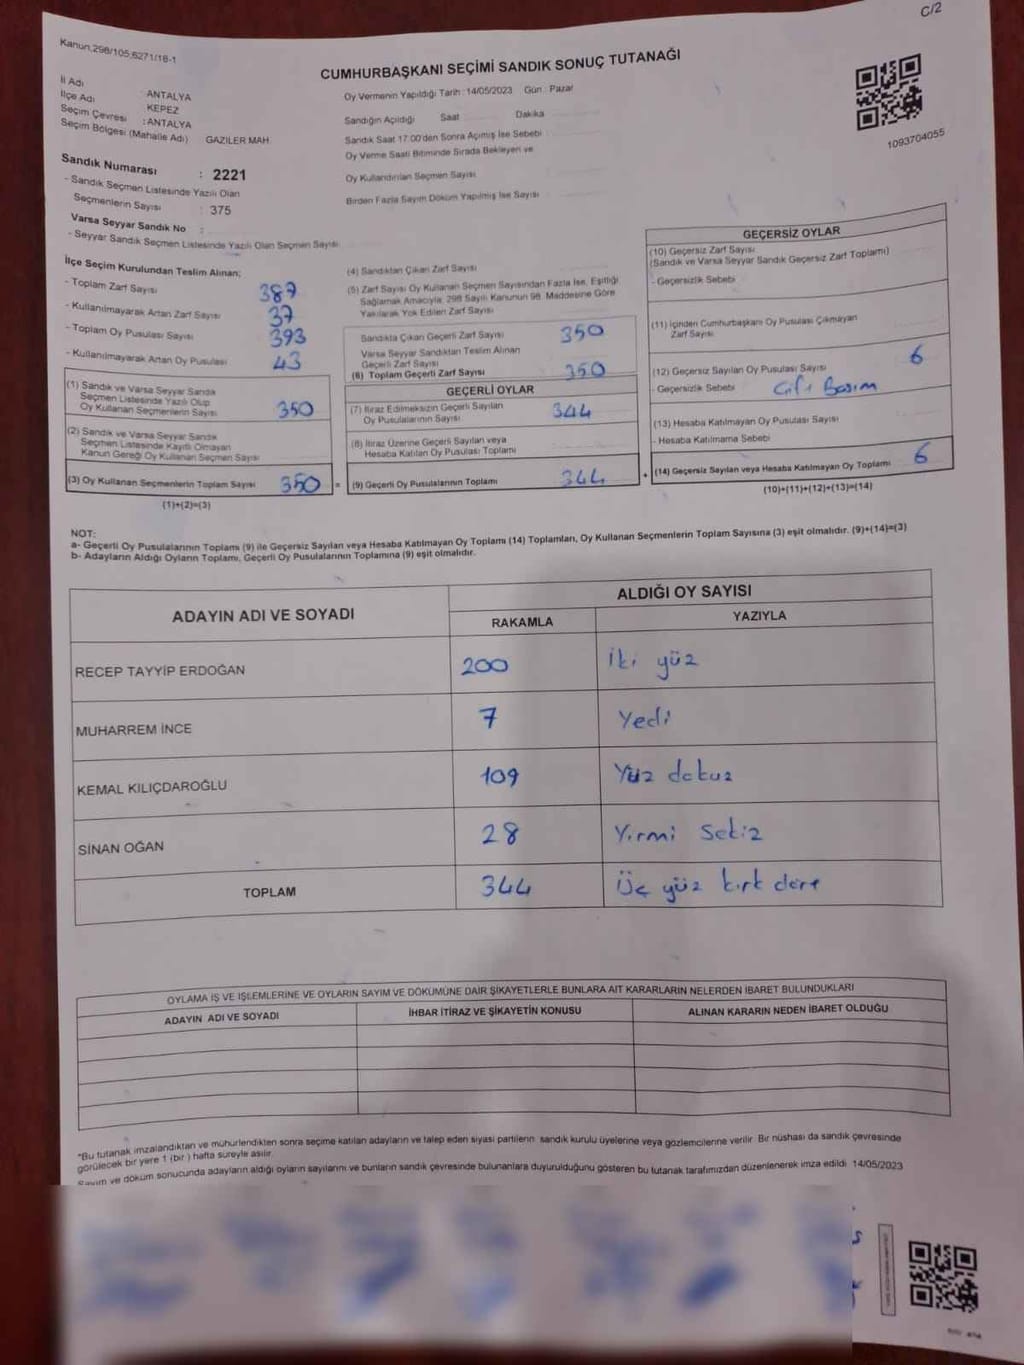 C/2
Kanun,298/105;6271/18-1
CUMHURBAŞKANI SEÇİMİ SANDIK SONUÇ TUTANAĞI
İl Adı : ANTALYA
İlçe Adı : KEPEZ
Seçim Çevresi : ANTALYA
Seçim Bölgesi (Mahalle Adı) GAZİLER MAH.
Oy Vermenin Yapıldığı Tarih : 14/05/2023 Gün : Pazar
Sandığın Açıldığı Saat Dakika
Sandık Saat 17:00'den Sonra Açımış İse Sebebi
Oy Verme Saati Bitiminde Sırada Bekleyen ve
Oy Kullandırılan Seçmen Sayısı
Birden Fazla Sayım Döküm Yapılmış İse Sayısı
1093704055
Sandık Numarası : 2221
- Sandık Seçmen Listesinde Yazılı Olan
Seçmenlerin Sayısı : 375
Varsa Seyyar Sandık No :
- Seyyar Sandık Seçmen Listesinde Yazılı Olan Seçmen Sayısı
İlçe Seçim Kurulundan Teslim Alınan;
- Toplam Zarf Sayısı 387
- Kullanılmayarak Artan Zarf Sayısı 37
- Toplam Oy Pusulası Sayısı 393
- Kullanılmayarak Artan Oy Pusulası 43
(1) Sandık ve Varsa Seyyar Sandık
Seçmen Listesinde Yazılı Olup
Oy Kullanan Seçmenlerin Sayısı 350
(2) Sandık ve Varsa Seyyar Sandık
Seçmen Listesinde Kayıtlı Olmayan
Kanun Gereği Oy Kullanan Seçmen Sayısı
(3) Oy Kullanan Seçmenlerin Toplam Sayısı 350 =
(1)+(2)=(3)
(4) Sandıktan Çıkan Zarf Sayısı
(5) Zarf Sayısı Oy Kullanan Seçmen Sayısından Fazla İse, Eşitliği
Sağlamak Amacıyla, 298 Sayılı Kanunun 98. Maddesine Göre
Yakılarak Yok Edilen Zarf Sayısı
Sandıkta Çıkan Geçerli Zarf Sayısı 350
Varsa Seyyar Sandıktan Teslim Alınan
Geçerli Zarf Sayısı
(6) Toplam Geçerli Zarf Sayısı 350
GEÇERLİ OYLAR
(7) İtiraz Edilmeksizin Geçerli Sayılan
Oy Pusulalarının Sayısı 344
(8) İtiraz Üzerine Geçerli Sayılan veya
Hesaba Katılan Oy Pusulası Toplamı
(9) Geçerli Oy Pusulalarının Toplamı 344 +
GEÇERSİZ OYLAR
(10) Geçersiz Zarf Sayısı
(Sandık ve Varsa Seyyar Sandık Geçersiz Zarf Toplamı)
- Geçersizlik Sebebi
(11) İçinden Cumhurbaşkanı Oy Pusulası Çıkmayan
Zarf Sayısı
(12) Geçersiz Sayılan Oy Pusulası Sayısı 6
- Geçersizlik Sebebi Çift Basım
(13) Hesaba Katılmayan Oy Pusulası Sayısı
- Hesaba Katılmama Sebebi
(14) Geçersiz Sayılan veya Hesaba Katılmayan Oy Toplamı 6
(10)+(11)+(12)+(13)=(14)
NOT:
a- Geçerli Oy Pusulalarının Toplamı (9) ile Geçersiz Sayılan veya Hesaba Katılmayan Oy Toplamı (14) Toplamları, Oy Kullanan Seçmenlerin Toplam Sayısına (3) eşit olmalıdır. (9)+(14)=(3)
b- Adayların Aldığı Oyların Toplamı, Geçerli Oy Pusulalarının Toplamına (9) eşit olmalıdır.
ADAYIN ADI VE SOYADI
ALDIĞI OY SAYISI
RAKAMLA YAZIYLA
RECEP TAYYİP ERDOĞAN 200 İki yüz
MUHARREM İNCE 7 Yedi
KEMAL KILIÇDAROĞLU 109 Yüz dokuz
SİNAN OĞAN 28 Yirmi Sekiz
TOPLAM 344 Üç yüz kırk dört
OYLAMA İŞ VE İŞLEMLERİNE VE OYLARIN SAYIM VE DÖKÜMÜNE DAİR ŞİKAYETLERLE BUNLARA AİT KARARLARIN NELERDEN İBARET BULUNDUKLARI
ADAYIN ADI VE SOYADI İHBAR İTİRAZ VE ŞİKAYETİN KONUSU ALINAN KARARIN NEDEN İBARET OLDUĞU
*Bu tutanak imzalandıktan ve mühürlendikten sonra seçime katılan adayların ve talep eden siyasi partilerin sandık kurulu üyelerine veya gözlemcilerine verilir. Bir nüshası da sandık çevresinde
görülecek bir yere 1 (bir) hafta süreyle asılır.
Sayım ve döküm sonucunda adayların aldığı oyların sayılarını ve bunların sandık çevresinde bulunanlara duyurulduğunu gösteren bu tutanak tarafımızdan düzenlenerek imza edildi. 14/05/2023